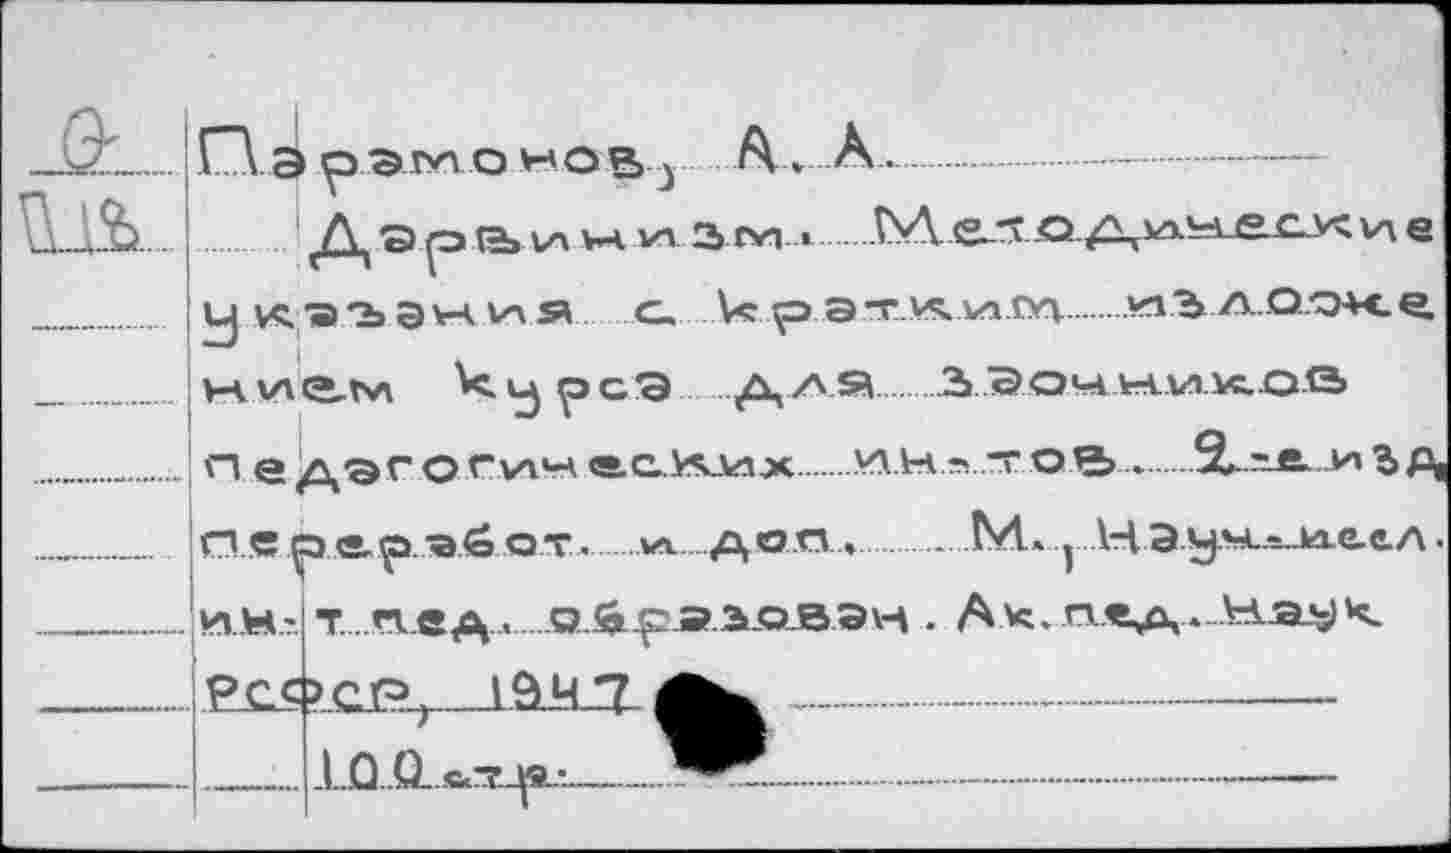 Парамонов, А. А.
Дарвинизм. Методические
указания с кратким изложе
нием курса для заочников
педагогических ин-тов. 2-е изд.
переработ. и доп. М., Науч.-иссл.
ин-т пед. образован. Ак. пед. наук
РСФСР, 1947
100 стр.